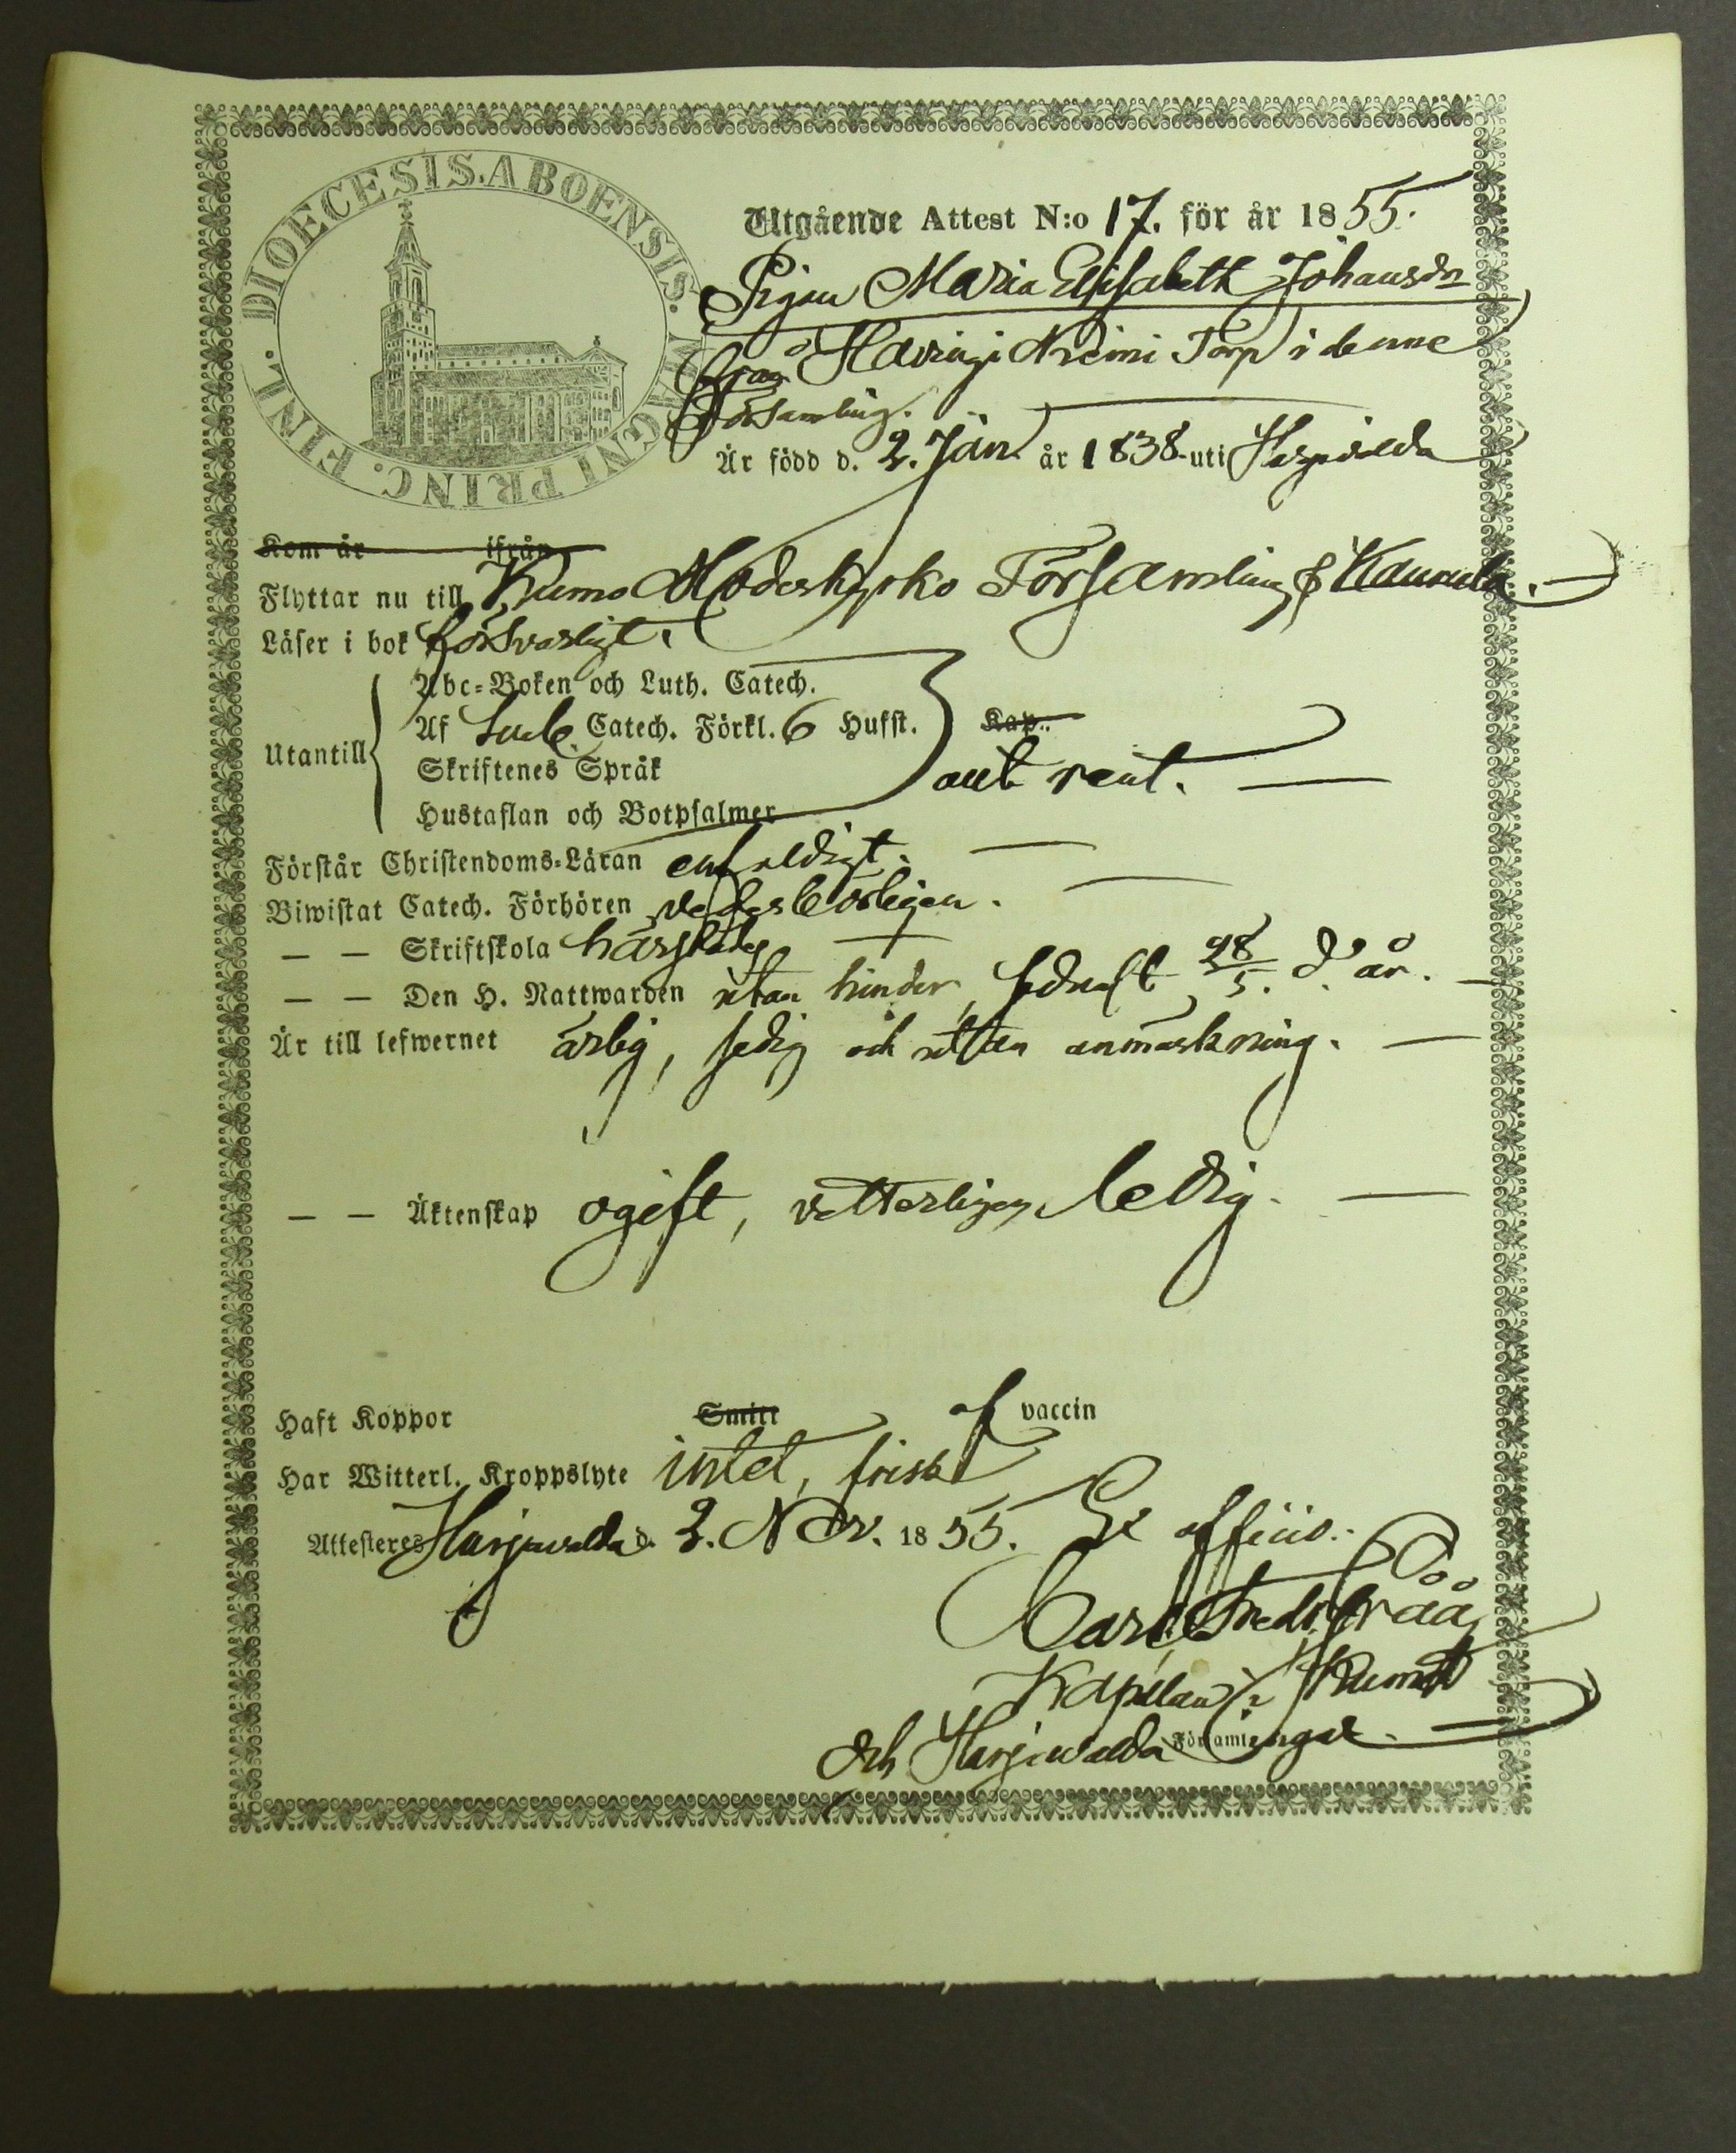 DIOECESIS. ABOENSIS. MAGNI PRINC. FINL.
Utgående Attest N:o 17. för år 1855.
Pigan Maria Elisabeth Johansdr
från Havingi Niemi Torp i denne
Församling.
Är född d. 2. Jan. år 1838 uti Harjavalda
Kom år ifrån
Flyttar nu till Kumo Moderkyrko Församling &
Läser i bok försvarligt.
Abc-Boken och Luth. Catech.
Af Catech. Förkl. 6 Hufst. Kap.
Utantill
Skriftenes Språk
rent.
Hustaflan och Botpsalmer
Förstår Christendoms-Läran enfaldigt.
Biwistat Catech. Förhören vederbörligen.
— — Skriftskola härstädes
— — Den H. Nattwarden utan hinder, sednast 28/5. d. år.
Är till lefwernet ärlig, sedig och utan anmärkning.
— — Äktenskap ogift, vetterligen ledig.
Haft Koppor Smitt af vaccin
Har Witterl. Kroppslyte intet, frisk
Attesteres Harjavalda d. 2. Nov. 1855. Ex officio.
Carl Fredr. Frååg
Kapellan i Kumo
och Harjavalda Församlingar.